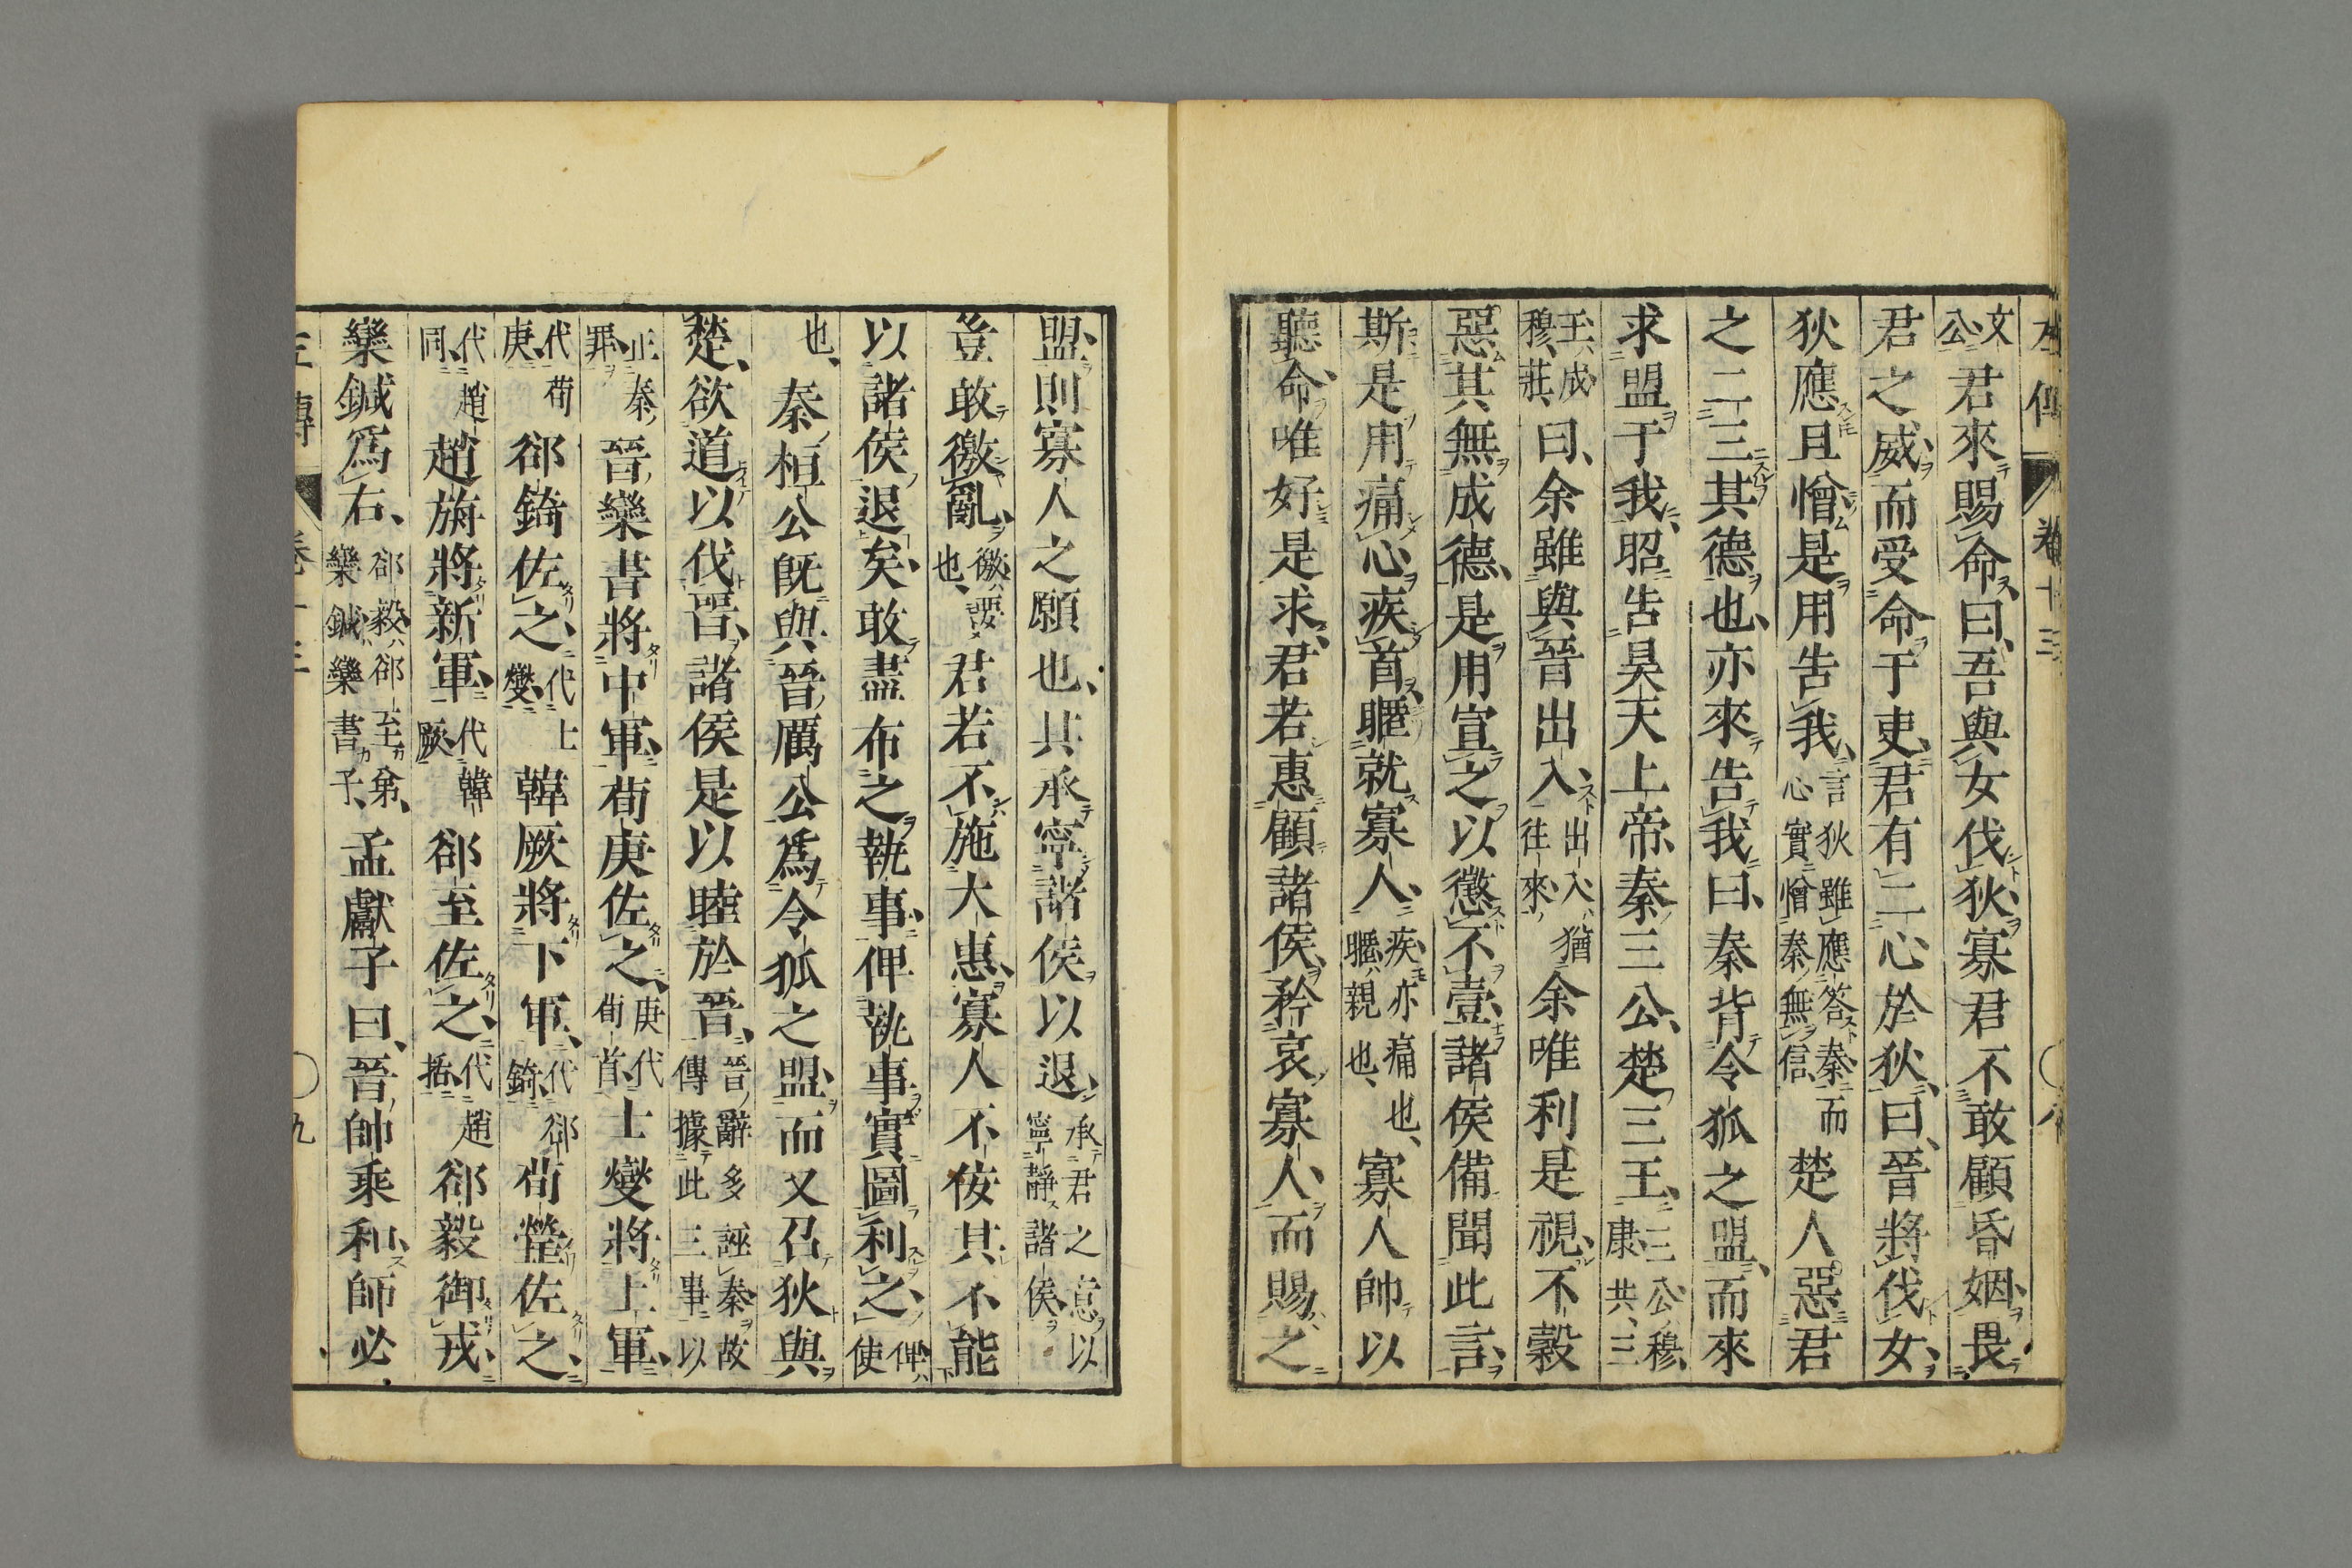 左傳 卷十三 〇 八
文公君來賜命、曰、吾與女伐狄、寡君不敢顧昏姻、畏
君之威、而受命于吏、君有二心於狄、曰、晉將伐女、
狄應且憎、是用告我、言狄雖應答秦而心實憎秦無信楚人惡君
之二三其德也、亦來告我曰、秦背令狐之盟、而來
求盟于我、昭告昊天上帝秦三公、楚三王、三公穆、康共、三
王、成、穆、莊、曰、余雖與晉出入、出入、猶往來余唯利是視、不穀
惡其無成德、是用宣之、以懲不壹、諸侯備聞此言、
斯是用痛心疾首、暱就寡人、疾亦痛也、暱親也、寡人帥以
聽命、唯好是求、君若惠顧諸侯、矜哀寡人、而賜之
盟、則寡人之願也、其承寧諸侯以退、承君之意以寧靜諸侯
豈敢徼亂、徼要也、君若不施大惠、寡人不佞其不能
以諸侯退矣、敢盡布之執事、俾執事實圖利之、俾使
也、秦桓公既與晉厲公爲令狐之盟、而又召狄與
楚、欲道以伐晉、諸侯是以睦於晉、晉辭多誣秦故傳據此三事以
正秦罪、晉欒書將中軍、荀庚佐之、庚代荀首、士燮將上軍、
代荀庚、郤錡佐之、代士燮、韓厥將下軍、代郤錡、荀罃佐之、
代趙同、趙旃將新軍、代韓厥、郤至佐之、代趙括、郤毅御戎、
欒鍼爲右、郤毅郤至弟、欒鍼欒書子、孟獻子曰、晉帥乘和、師必
左傳 卷十三 〇 九